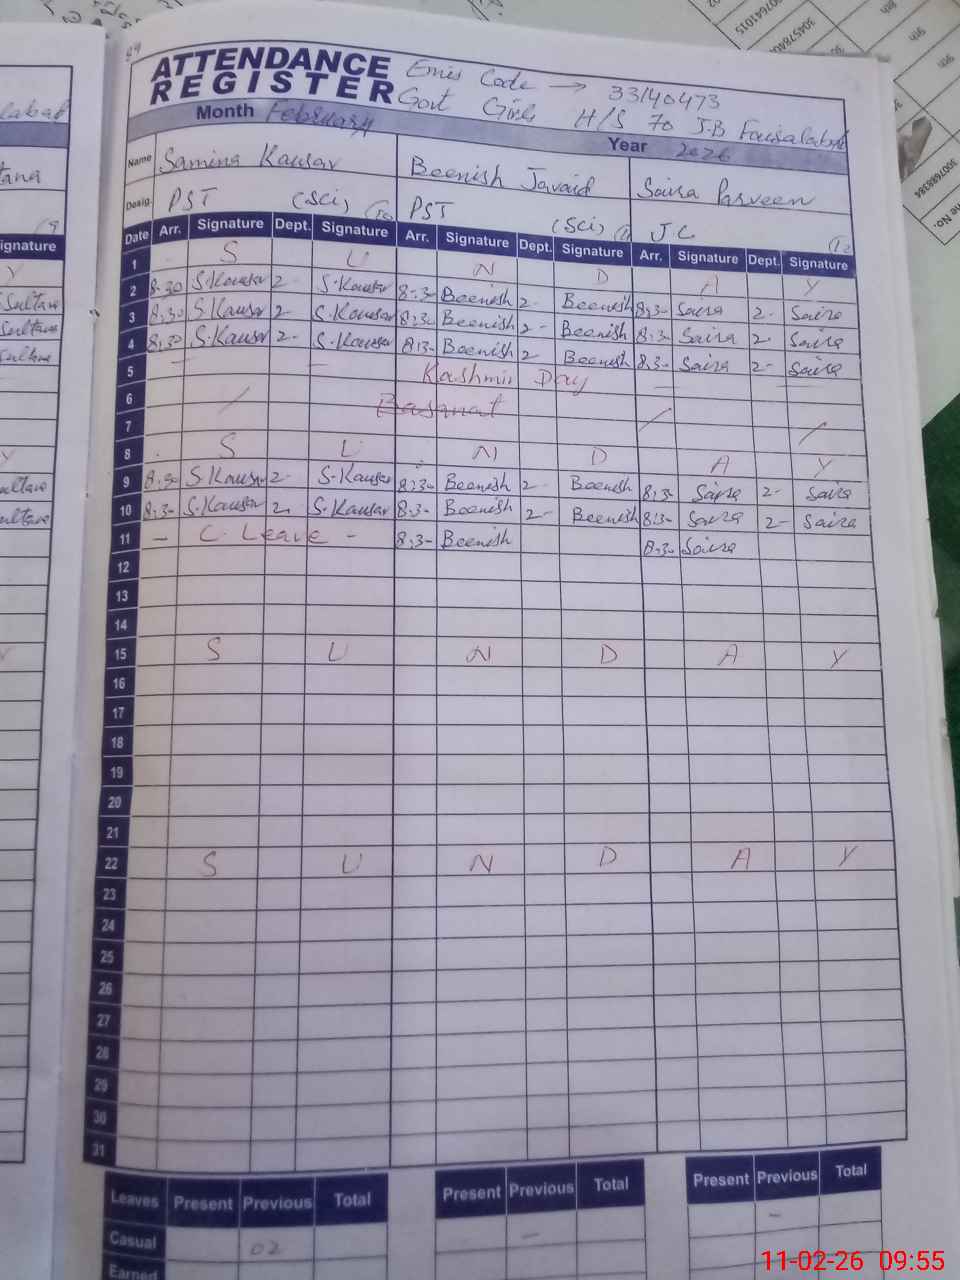 ATTENDANCE
REGISTER
Emis Code → 33140473
Govt Girls H/S 70 J.B Faisalabad
Month February
Year 2026
Name Samina Kausar Beenish Javaid Saira Parveen
Desig. PST (Sci) PST (Sci) J.C
Date Arr. Signature Dept. Signature Arr. Signature Dept. Signature Arr. Signature Dept. Signature
1 S U N D A Y
2 8:30 S.Kausar 2- S.Kausar 8:3- Beenish 2- Beenish 8:3- Saira 2- Saira
3 8:30 S.Kausar 2- S.Kausar 8:30 Beenish 2- Beenish 8:3- Saira 2- Saira
4 8:30 S.Kausar 2- S.Kausar 8:3- Beenish 2 Beenish 8:3- Saira 2- Saira
5 Kashmir Day
6 Basant
7
8 S U N D A Y
9 8:30 S.Kausar 2- S.Kausar 8:30 Beenish 2- Beenish 8:3- Saira 2- Saira
10 8:3- S.Kausar 2 S.Kausar 8:3- Beenish 2- Beenish 8:3- Saira 2- Saira
11 - C. Leave - 8:3- Beenish 8:30 Saira
12
13
14
15 S U N D A Y
16
17
18
19
20
21
22 S U N D A Y
23
24
25
26
27
28
29
30
31
Leaves Present Previous Total Present Previous Total Present Previous Total
Casual 02 - -
Earned
11-02-26 09:55